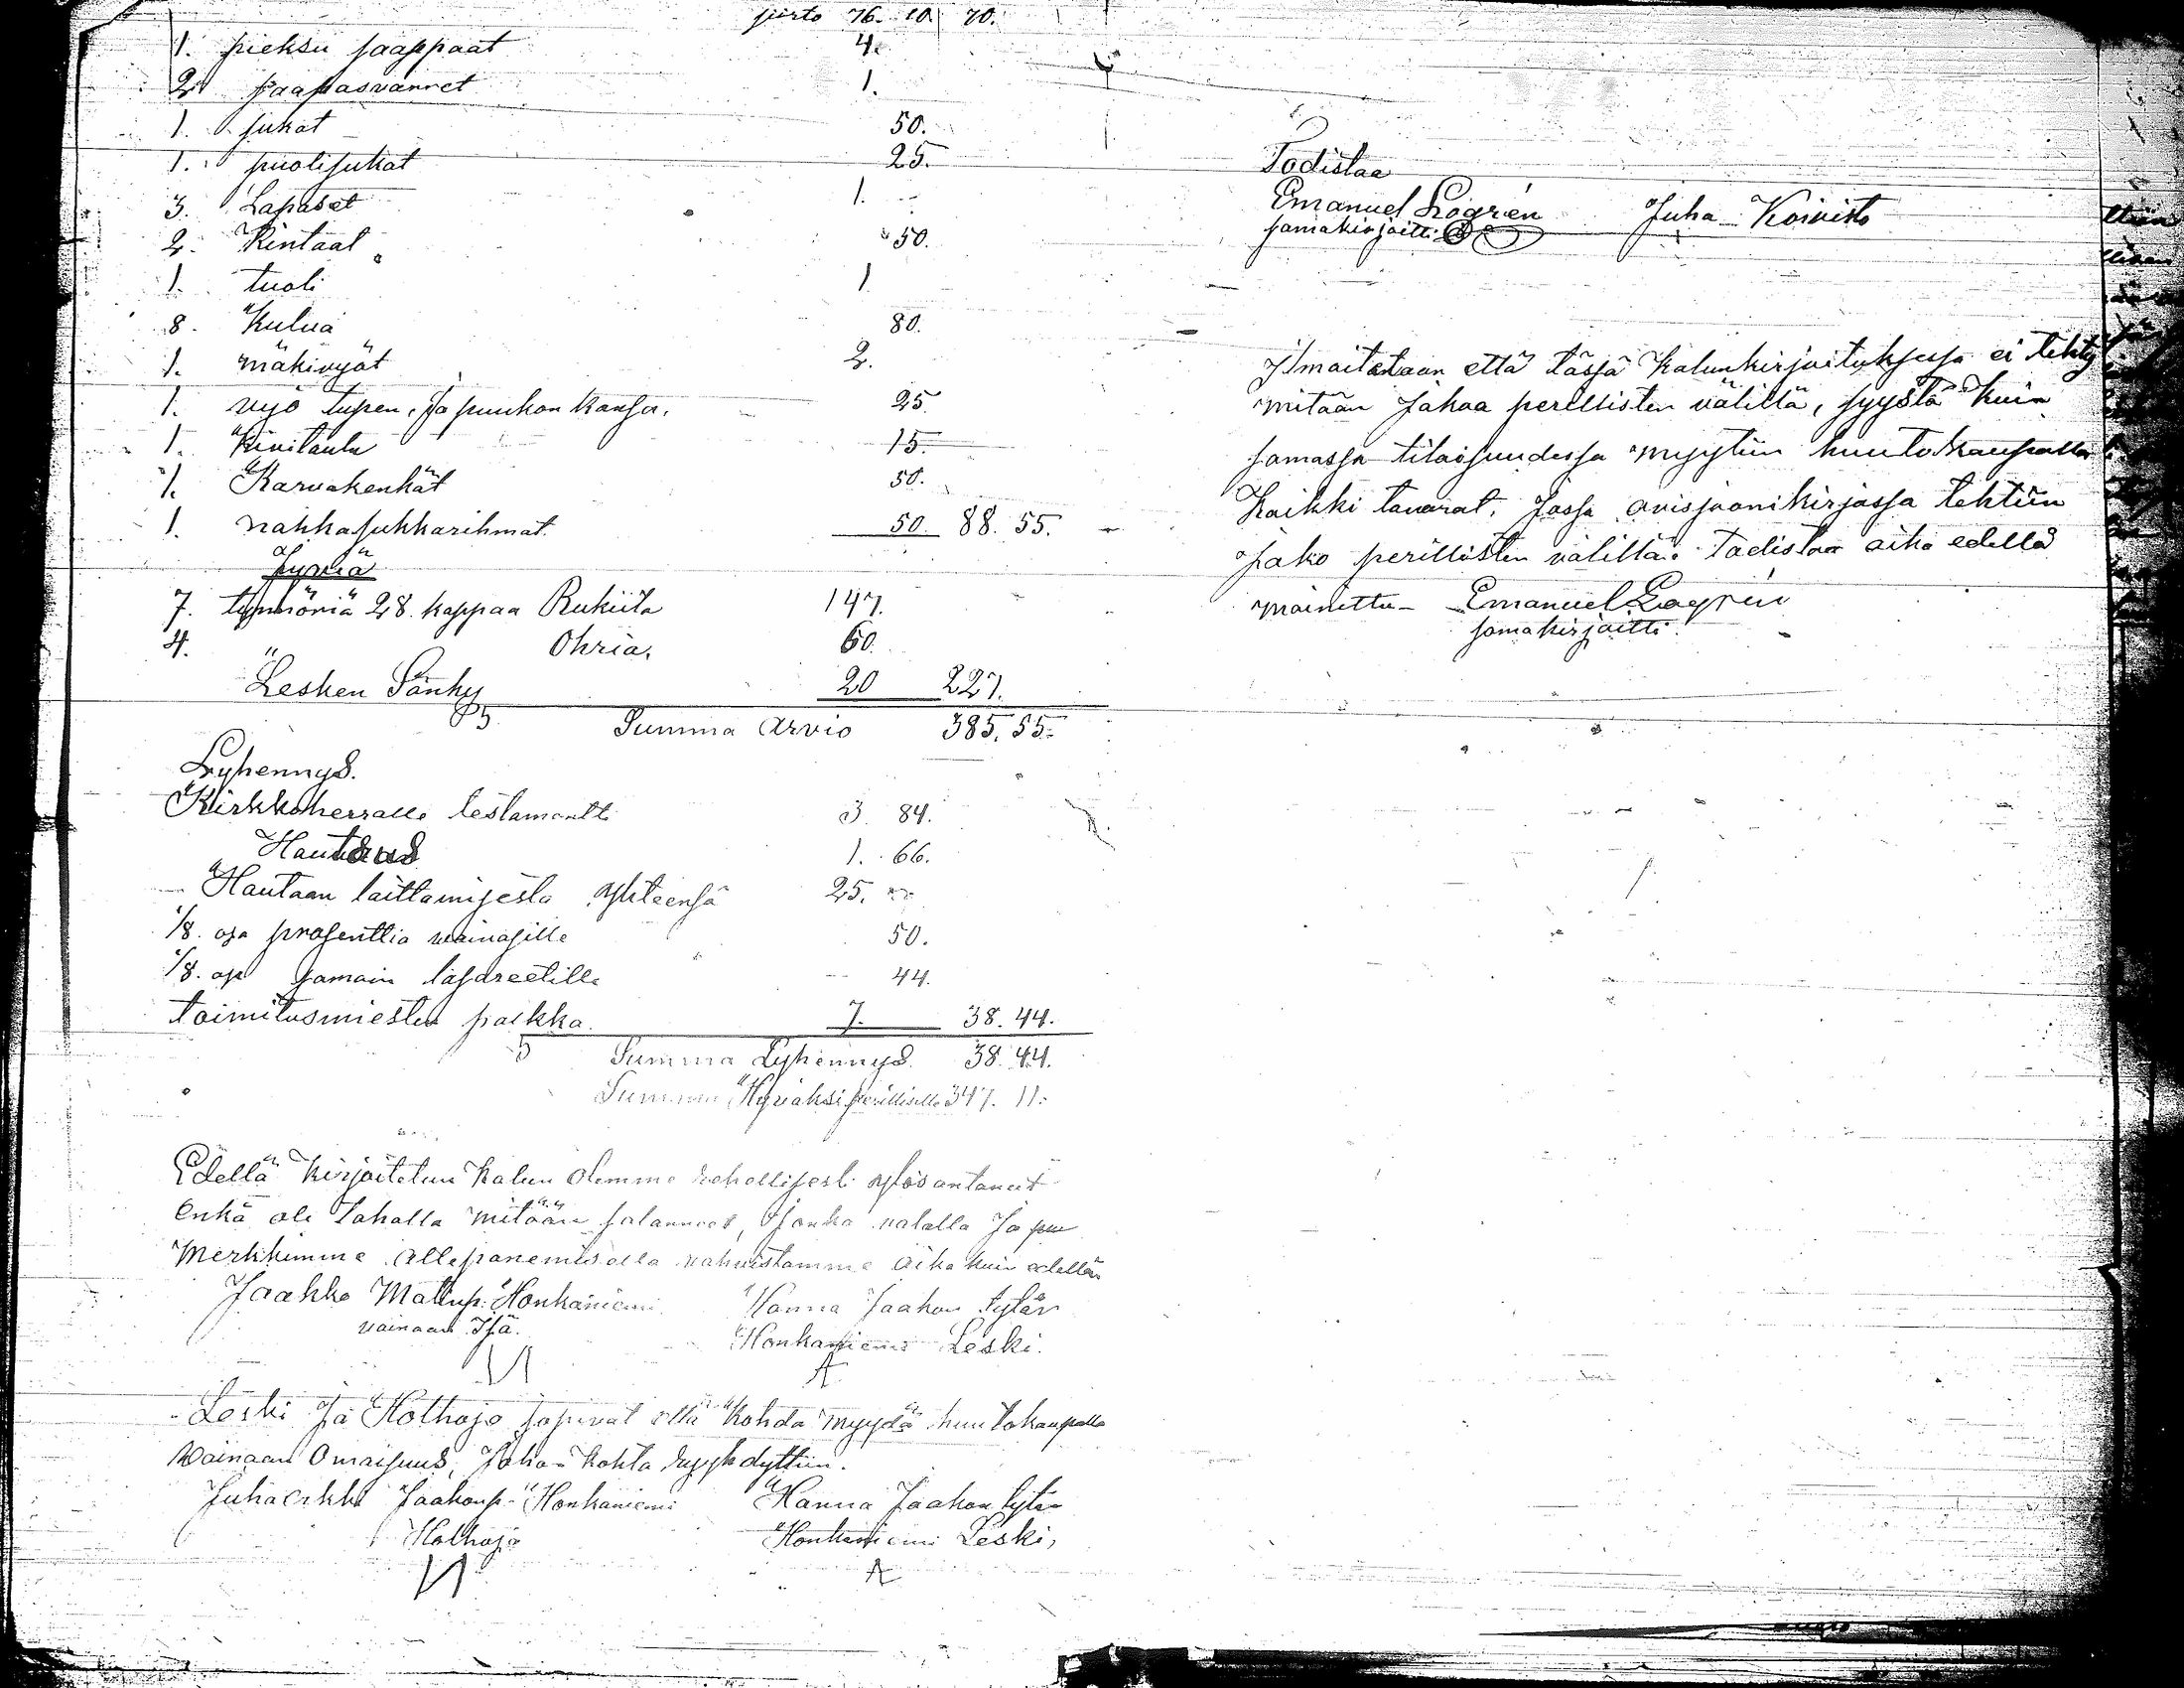 siirto 76. 10. 70.
1. pieksu saappaat 4.
2 saapasvarret 1.
1. sukat 50.
1. puolisukat 25.
3. Lapaset 1.
2. Kintaat 50.
1. tuoli 1
8. Kulua 80.
1. mäkivyöt 2.
1. vyö tupen, ja puukon kansa. 25.
1. Kivitaulu 15.
1. Karvakenkät 50.
1. nahkasukkarihmat. 50. 88. 55.
Jyviä
7. tynnöriä 28. kappaa Rukiita 147.
4. " Ohria. 60.
Lesken Sänky 20 227.
Summa Arvio 385. 55.
Lyhennys.
Kirkkoherralle testamentti 3 84.
Hautaus 1. 66.
Hautaan laittamisesta yhteensä 25.
1/8. osa prosenttia vaivasille 50.
1/8. osa samain lasareetille 44.
toimitusmiesten palkka. 7. 38. 44.
Summa Lyhennys. 38. 44.
Summa Hyväksi perillisille 347. 11.
Edellä Kirjoitetun Kalun Olemme rehellisesti ylös antaneet
Enkä ole tahalla mitään salanneet, jonka valalla Ja puu
Merkkimme allepanemisella vahvistamme Aika kuin edellä
Jaakko Matinp. Honkaniemi Hanna Jaakon tytär
vainaan Isä. Honkaniemi Leski.
Leski Ja Holhoja sopivat että Kohda myydä huutokaupalla
Vainaan Omaisuus, Johon kohta ryyhdyttiin.
Juha erkki Jaakonp. Honkaniemi Hanna Jaakon tytär
Holhoja Honkaniemi Leski,
Todistaa
Emanuel Logrén Juha Koivisto
samakirjoitti
Ilmoitetaan että tässä Kalunkirjoituksessa ei tehty
mitään Jakoa perillisten välillä, syystä kuin
samassa tilaisuudessa myytiin huutokaupalla
Kaikki tavarat, Jossa avisjoonikirjassa tehtiin
Jako perillisten välillä. Todistaa aika edellä
mainittu - Emanuel Logrén
samakirjoitti.